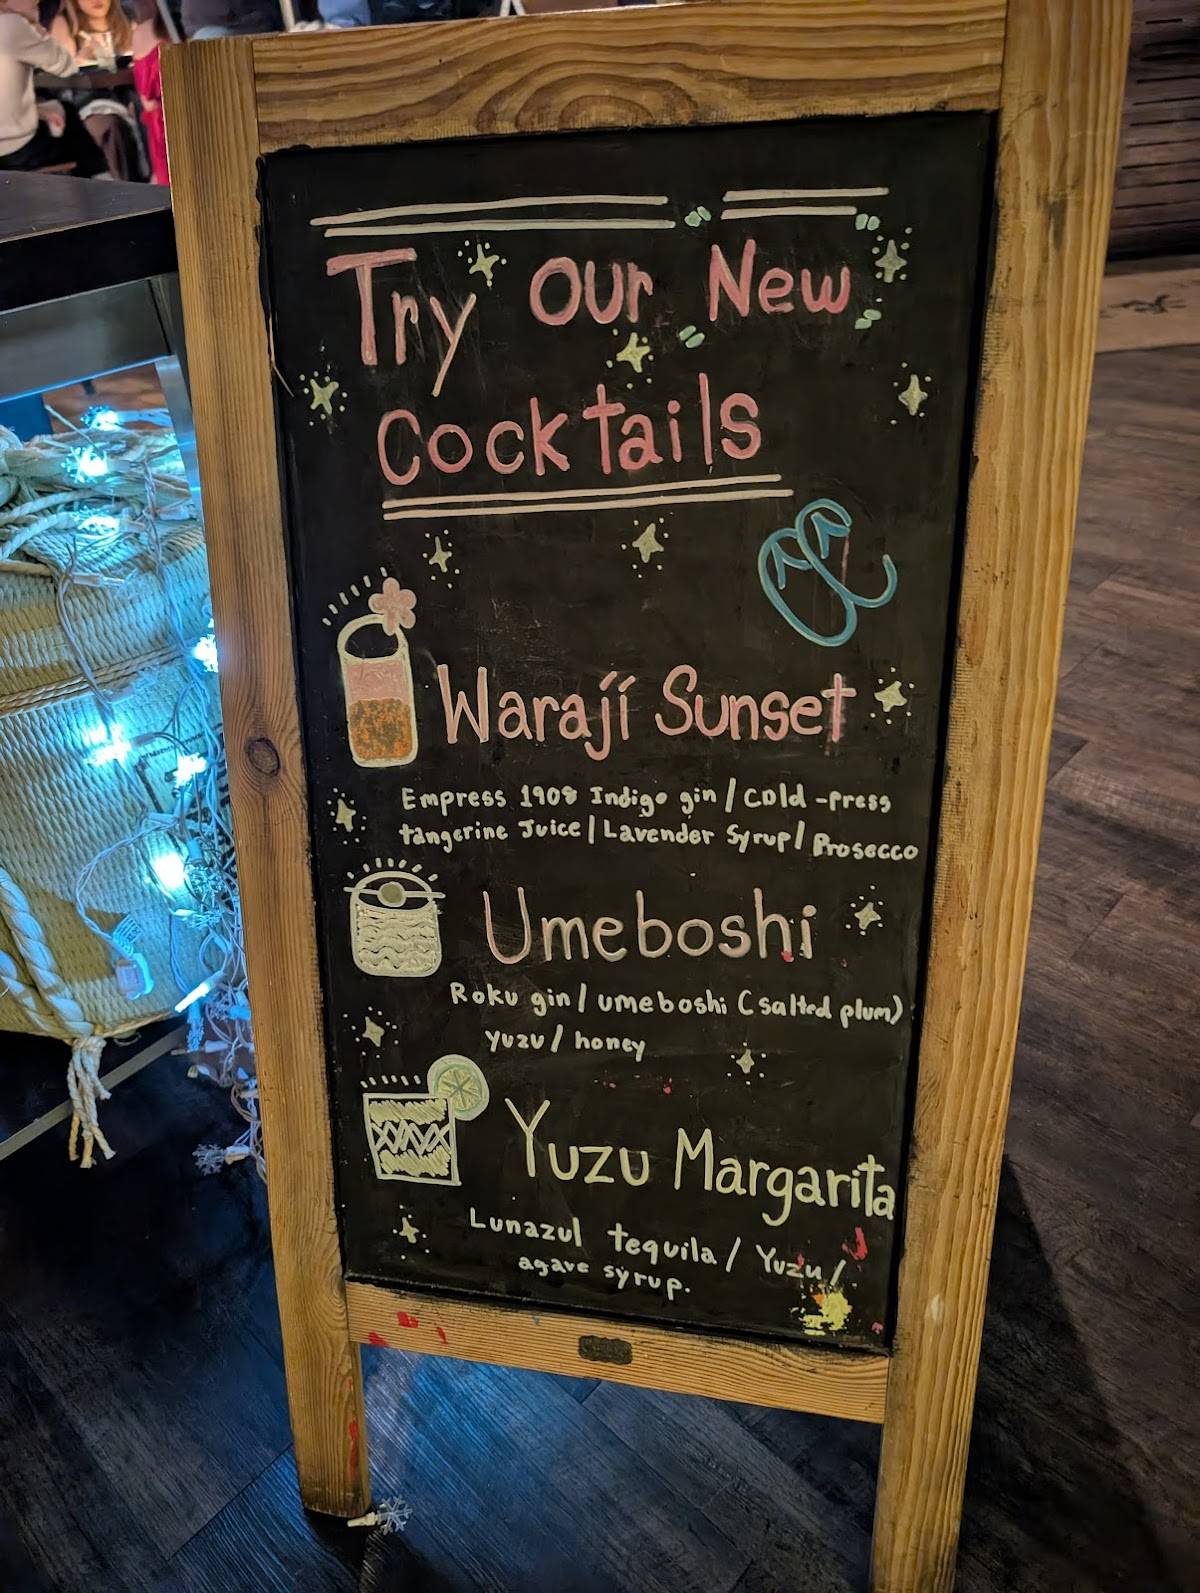 Try our New
Cocktails
Waraji Sunset
Empress 1908 Indigo gin / Cold-Press
tangerine Juice / Lavender Syrup / Prosecco
Umeboshi
Roku gin / umeboshi (salted plum)
yuzu / honey
Yuzu Margarita
Lunazul tequila / Yuzu /
agave syrup.